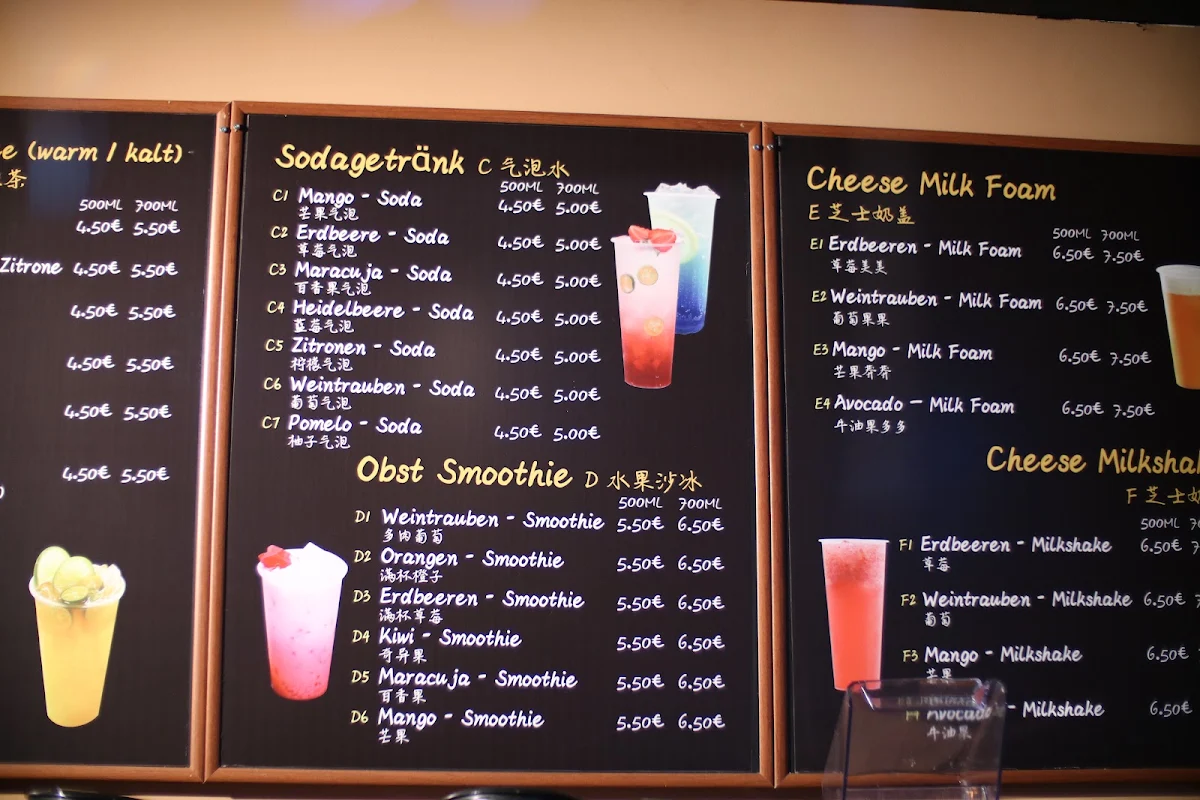 e (warm / kalt)
茶
500ML 700ML
4.50€ 5.50€
Zitrone 4.50€ 5.50€
4.50€ 5.50€
4.50€ 5.50€
4.50€ 5.50€
4.50€ 5.50€
Sodagetränk C 气泡水
500ML 700ML
C1 Mango - Soda 4.50€ 5.00€
芒果气泡
C2 Erdbeere - Soda 4.50€ 5.00€
草莓气泡
C3 Maracuja - Soda 4.50€ 5.00€
百香果气泡
C4 Heidelbeere - Soda 4.50€ 5.00€
蓝莓气泡
C5 Zitronen - Soda 4.50€ 5.00€
柠檬气泡
C6 Weintrauben - Soda 4.50€ 5.00€
葡萄气泡
C7 Pomelo - Soda 4.50€ 5.00€
柚子气泡
Obst Smoothie D 水果沙冰
500ML 700ML
D1 Weintrauben - Smoothie 5.50€ 6.50€
多肉葡萄
D2 Orangen - Smoothie 5.50€ 6.50€
满杯橙子
D3 Erdbeeren - Smoothie 5.50€ 6.50€
满杯草莓
D4 Kiwi - Smoothie 5.50€ 6.50€
奇异果
D5 Maracuja - Smoothie 5.50€ 6.50€
百香果
D6 Mango - Smoothie 5.50€ 6.50€
芒果
Cheese Milk Foam
E 芝士奶盖
500ML 700ML
E1 Erdbeeren - Milk Foam 6.50€ 7.50€
草莓芙芙
E2 Weintrauben - Milk Foam 6.50€ 7.50€
葡萄果果
E3 Mango - Milk Foam 6.50€ 7.50€
芒果
E4 Avocado - Milk Foam 6.50€ 7.50€
牛油果多多
Cheese Milksha
F 芝士奶
500ML 70
F1 Erdbeeren - Milkshake 6.50€ 7
草莓
F2 Weintrauben - Milkshake 6.50€ 7
葡萄
F3 Mango - Milkshake 6.50€
芒果
F4 Avocado - Milkshake 6.50€
牛油果